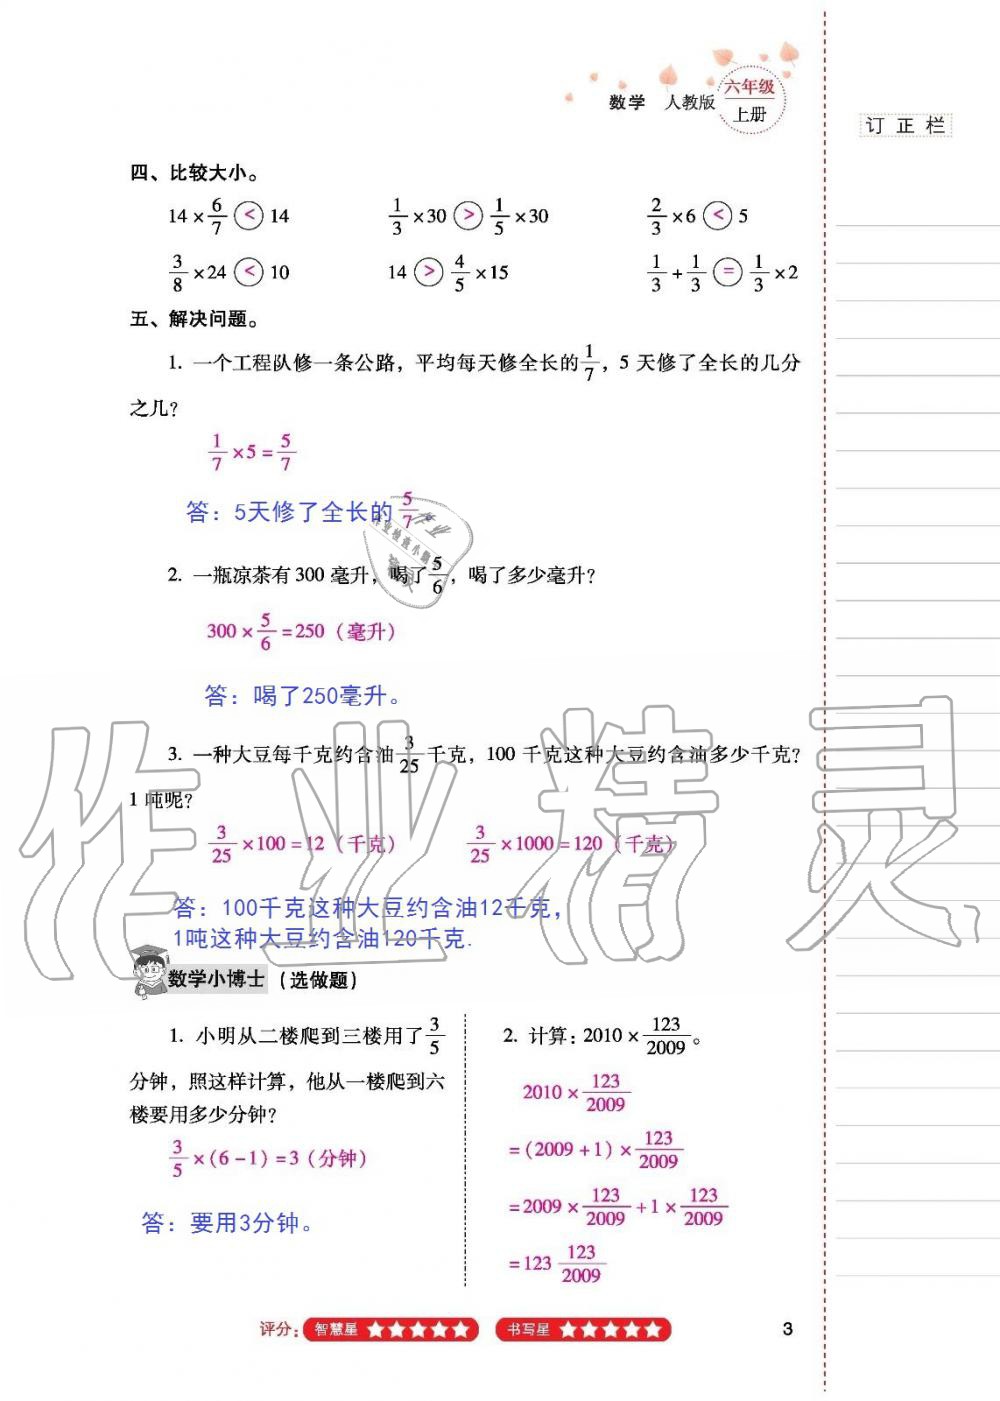 数学 人教版 六年级
上册
订正栏
四、比较大小。
14×6/7 < 14    1/3×30 > 1/5×30    2/3×6 < 5
3/8×24 < 10    14 > 4/5×15    1/3+1/3 = 1/3×2
五、解决问题。
1. 一个工程队修一条公路，平均每天修全长的1/7，5 天修了全长的几分
之几？
1/7×5=5/7
答：5天修了全长的5/7。
2. 一瓶凉茶有 300 毫升，喝了5/6，喝了多少毫升？
300×5/6=250（毫升）
答：喝了250毫升。
3. 一种大豆每千克约含油3/25千克，100 千克这种大豆约含油多少千克？
1 吨呢？
3/25×100=12（千克）    3/25×1000=120（千克）
答：100千克这种大豆约含油12千克，
1吨这种大豆约含油120千克.
数学小博士（选做题）
1. 小明从二楼爬到三楼用了3/5
分钟，照这样计算，他从一楼爬到六
楼要用多少分钟？
3/5×(6-1)=3（分钟）
答：要用3分钟。
2. 计算：2010×123/2009。
2010×123/2009
=(2009+1)×123/2009
=2009×123/2009+1×123/2009
=123 123/2009
评分：智慧星★★★★★ 书写星★★★★★
3
作业精灵